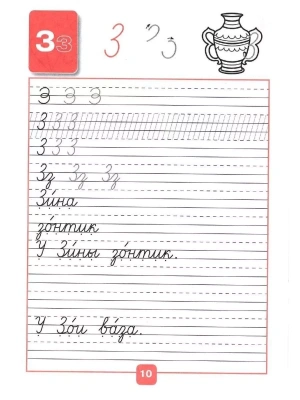 Зз З З з
З З З
З З З
З З З
Зз Зз Зз
Зи́на
зо́нтик
У Зи́ны зо́нтик.
У Зо́и ва́за.
10